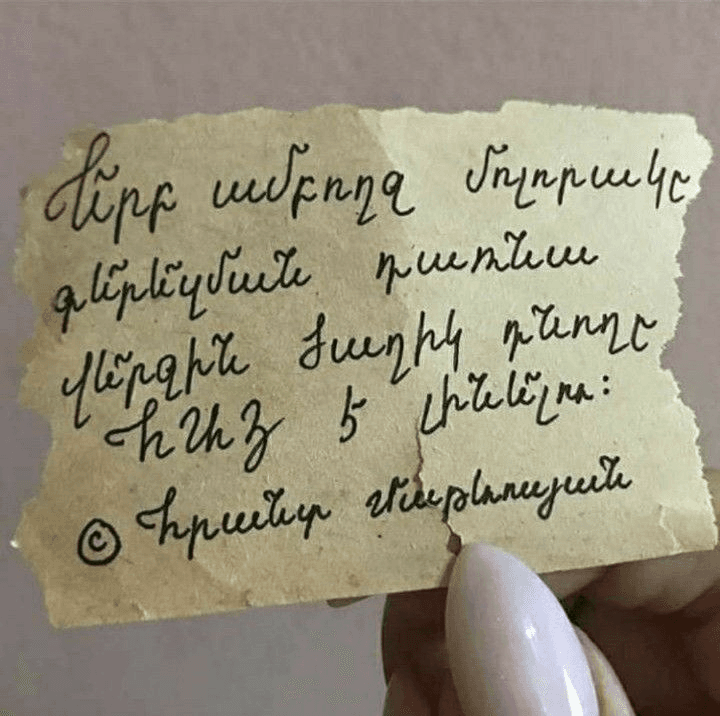 Երբ ամբողջ մոլորակը
գերեզման դառնա
վերջին ծաղիկ դնողը
ՀԱՅ է լինելու։
© Հրանտ Մաթևոսյան